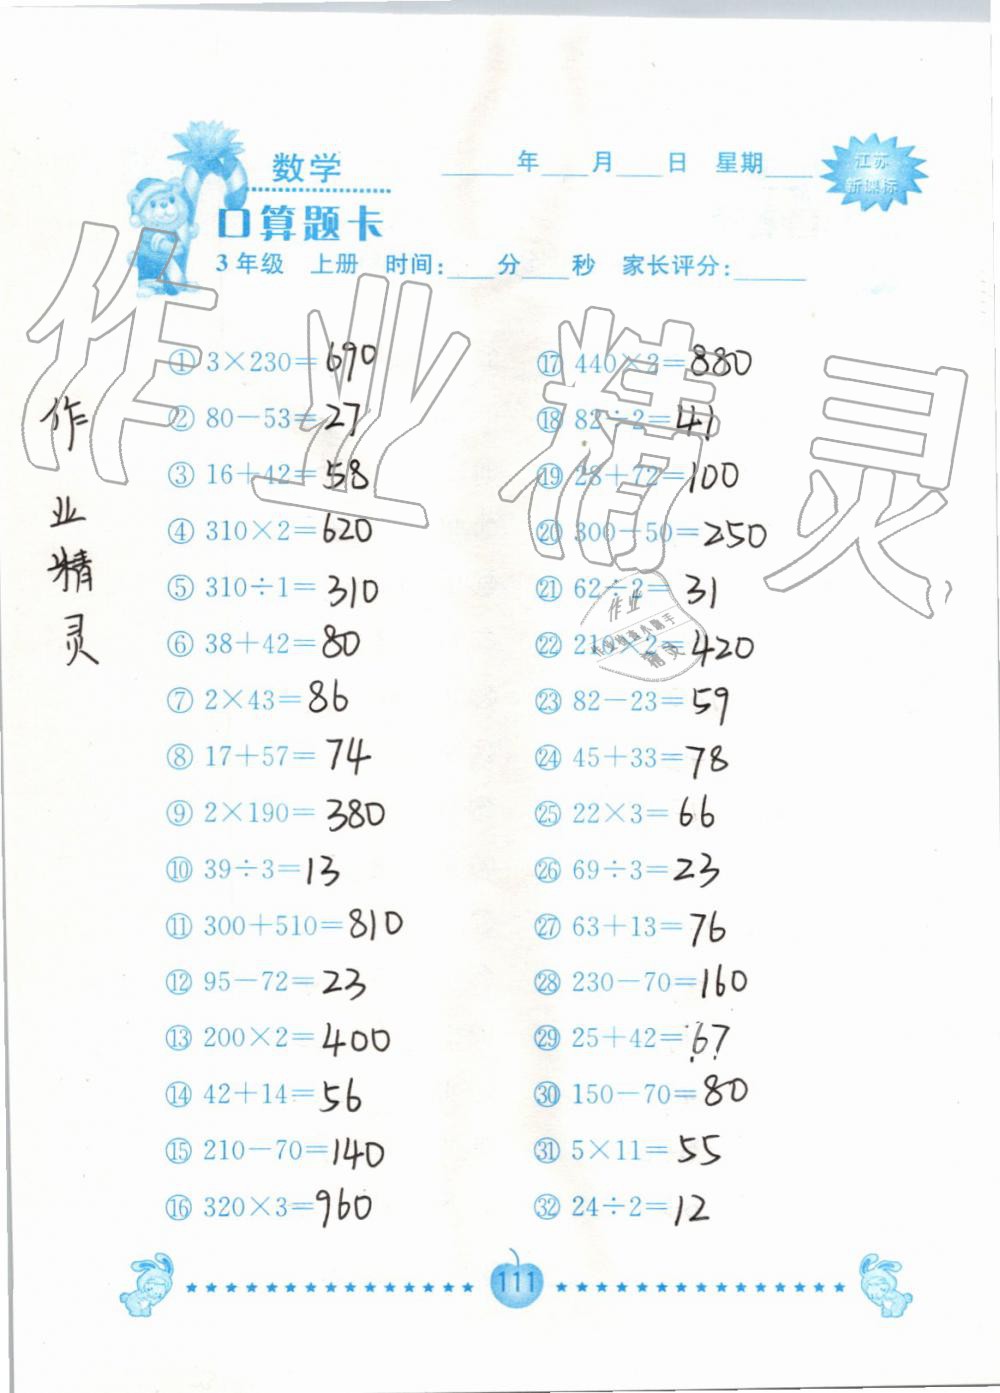 数学
____年____月____日 星期____
江苏
新课标
口算题卡
3年级 上册 时间:____分____秒 家长评分:____
作业精灵
作业精灵
① 3×230=690
② 80-53=27
③ 16+42=58
④ 310×2=620
⑤ 310÷1=310
⑥ 38+42=80
⑦ 2×43=86
⑧ 17+57=74
⑨ 2×190=380
⑩ 39÷3=13
⑪ 300+510=810
⑫ 95-72=23
⑬ 200×2=400
⑭ 42+14=56
⑮ 210-70=140
⑯ 320×3=960
⑰ 440×2=880
⑱ 82÷2=41
⑲ 28+72=100
⑳ 300-50=250
㉑ 62÷2=31
㉒ 210×2=420
㉓ 82-23=59
㉔ 45+33=78
㉕ 22×3=66
㉖ 69÷3=23
㉗ 63+13=76
㉘ 230-70=160
㉙ 25+42=67
㉚ 150-70=80
㉛ 5×11=55
㉜ 24÷2=12
作业
精灵
111